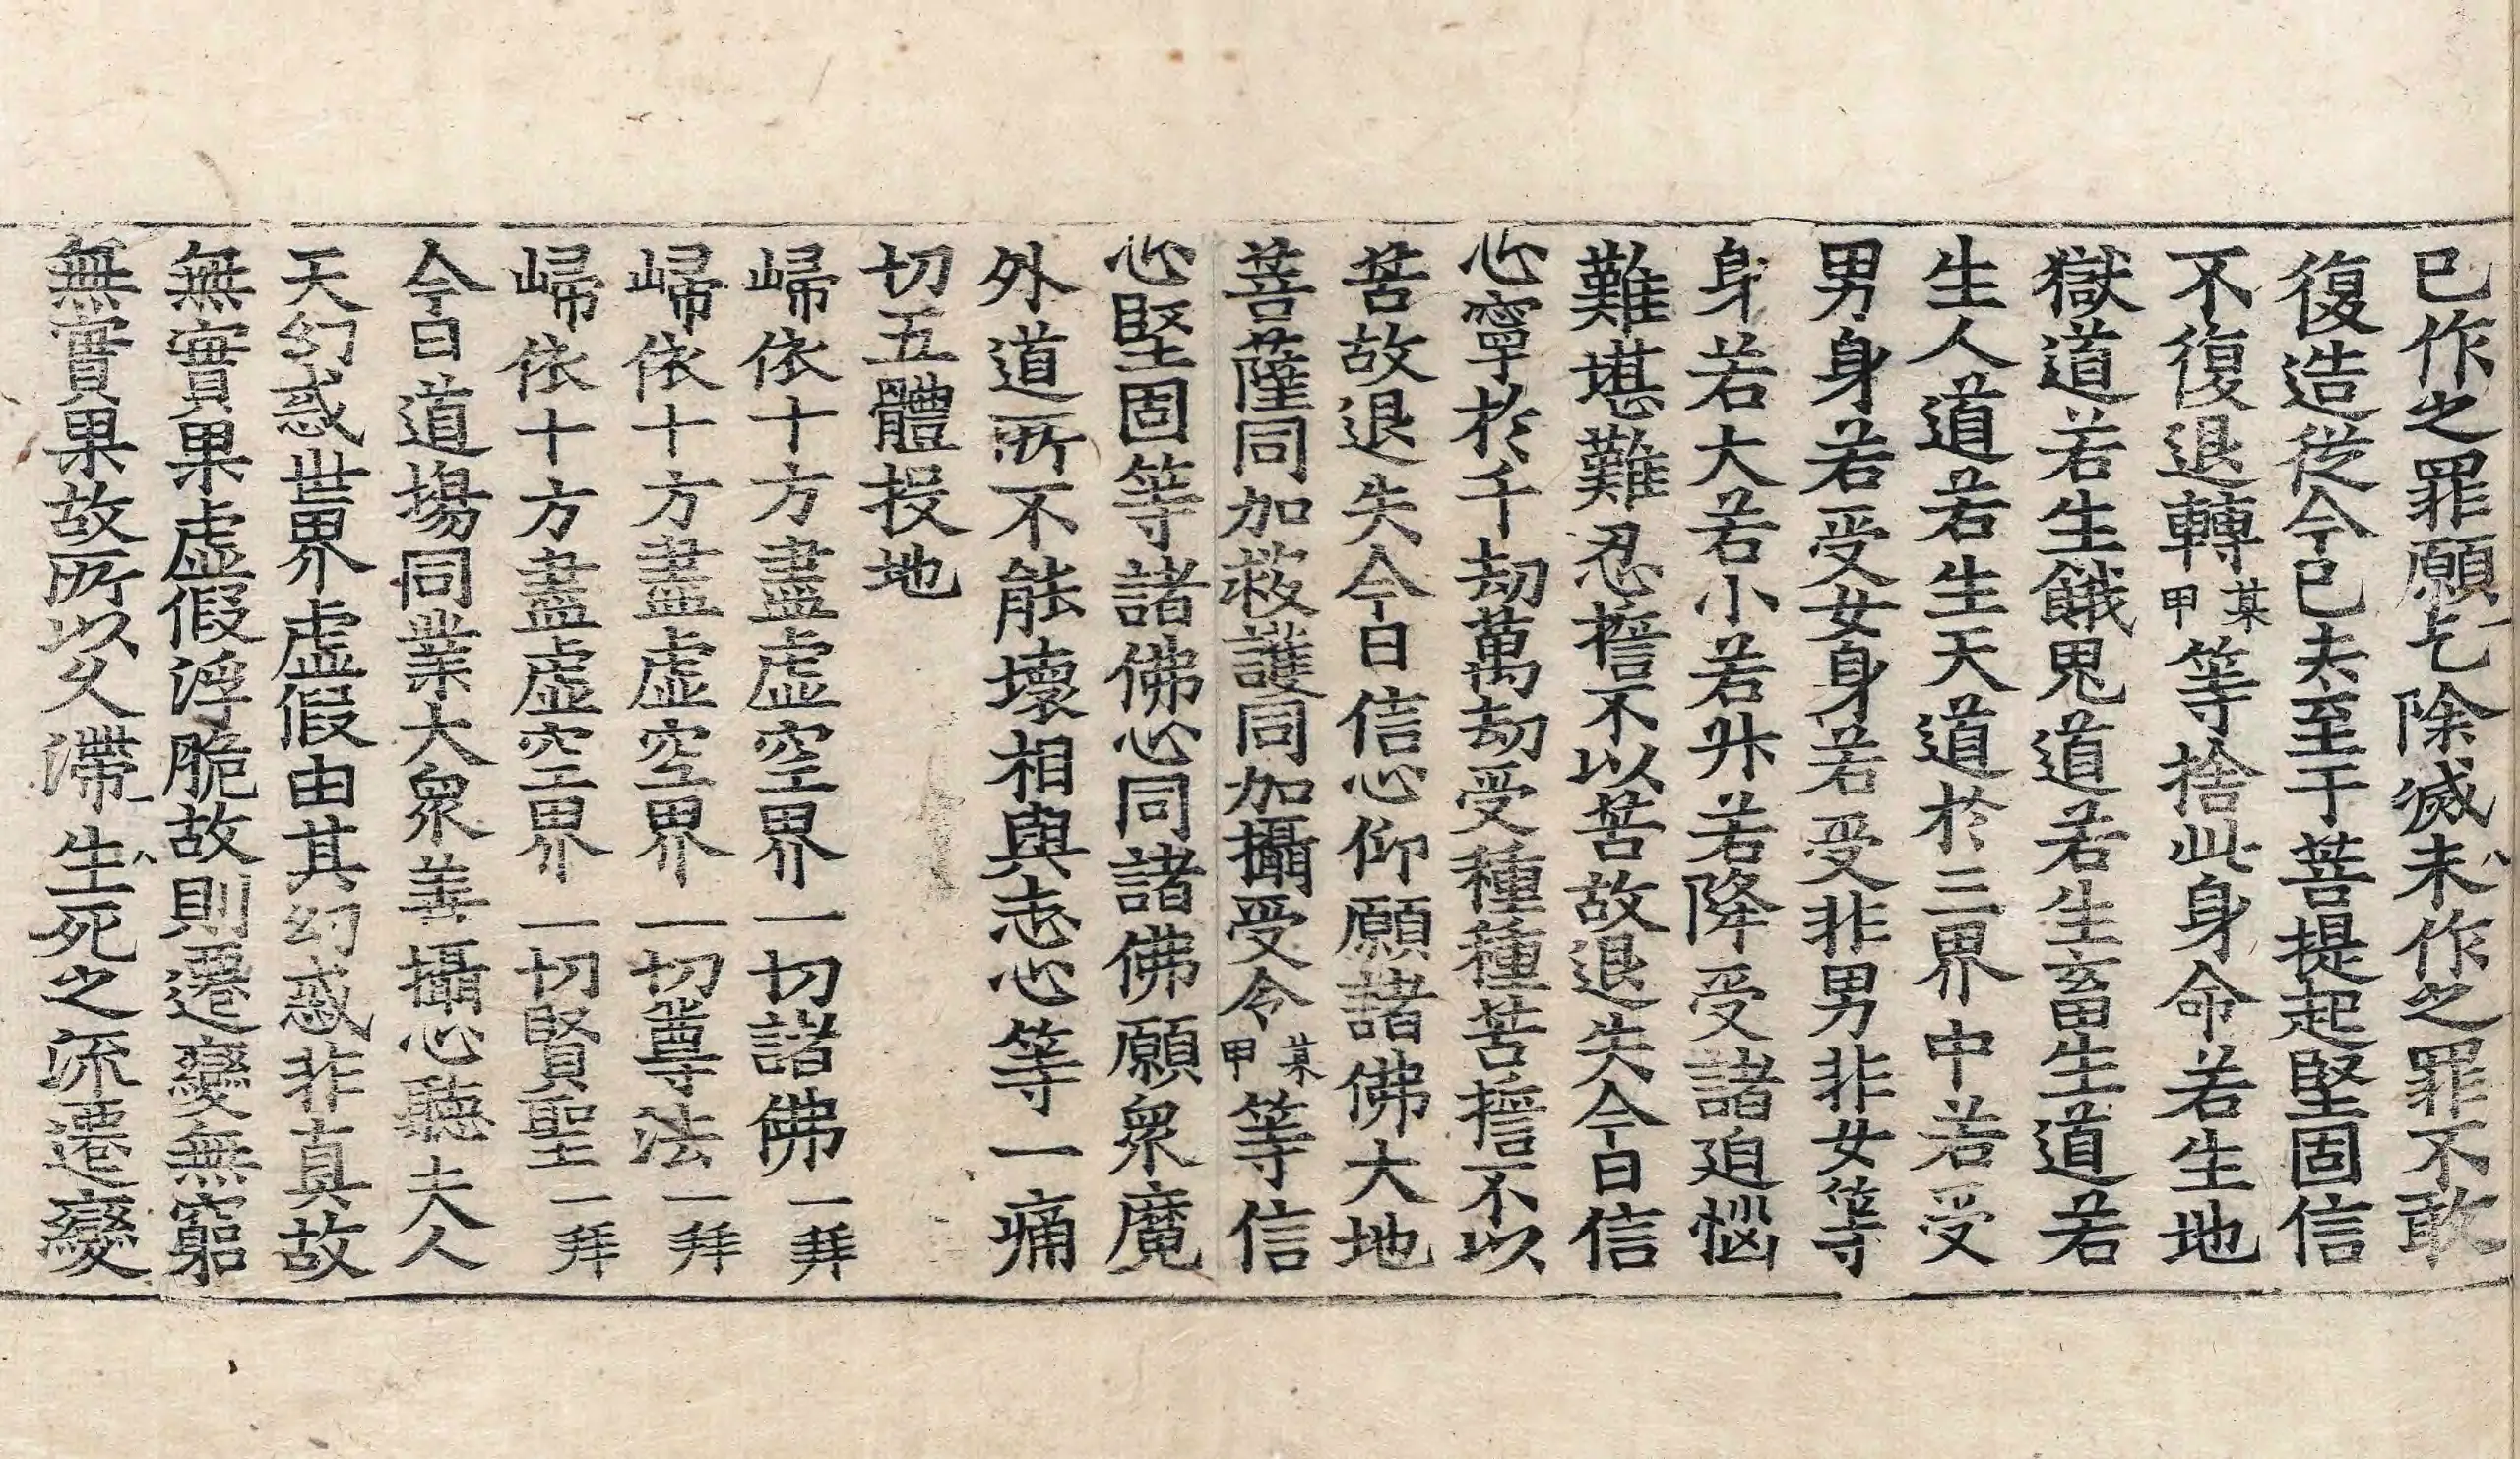 已作之罪願乞除滅未作之罪不敢
復造從今已去至于菩提起堅固信
不復退轉某甲等捨此身命若生地
獄道若生餓鬼道若生畜生道若
生人道若生天道於三界中若受
男身若受女身若受非男非女等
身若大若小若升若降受諸迫惱
難堪難忍誓不以苦故退失今日信
心寧於千劫萬劫受種種苦誓不以
苦故退失今日信心仰願諸佛大地
菩薩同加救護同加攝受令某甲等信
心堅固等諸佛心同諸佛願衆魔
外道所不能壞相與志心等一痛
切五體投地
歸依十方盡虛空界一切諸佛一拜
歸依十方盡虛空界一切尊法一拜
歸依十方盡虛空界一切賢聖一拜
今日道場同業大衆善攝心聽夫人
天幻惑世界虛假由其幻惑非真故
無實果虛假浮脆故則遷變無窮
無實果故所以久滯生死之流遷變